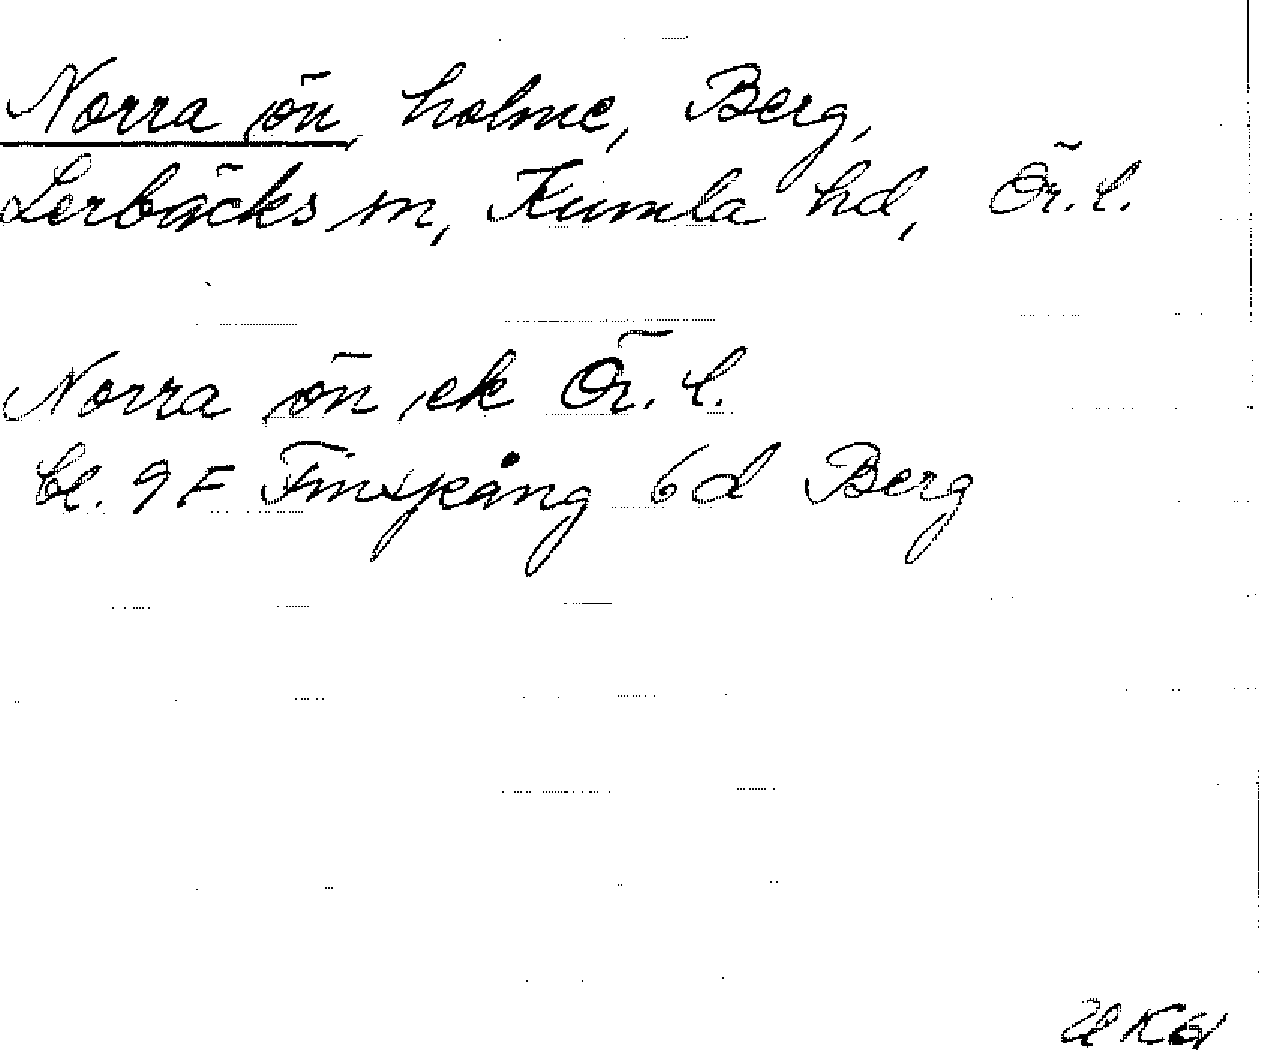 Norra ön, holme, Berg,
Lerbäcks sn, Kumla hd, Ör. l.
Norra ön, ek Ör. l.
bl. 9 F Finspång 6d Berg